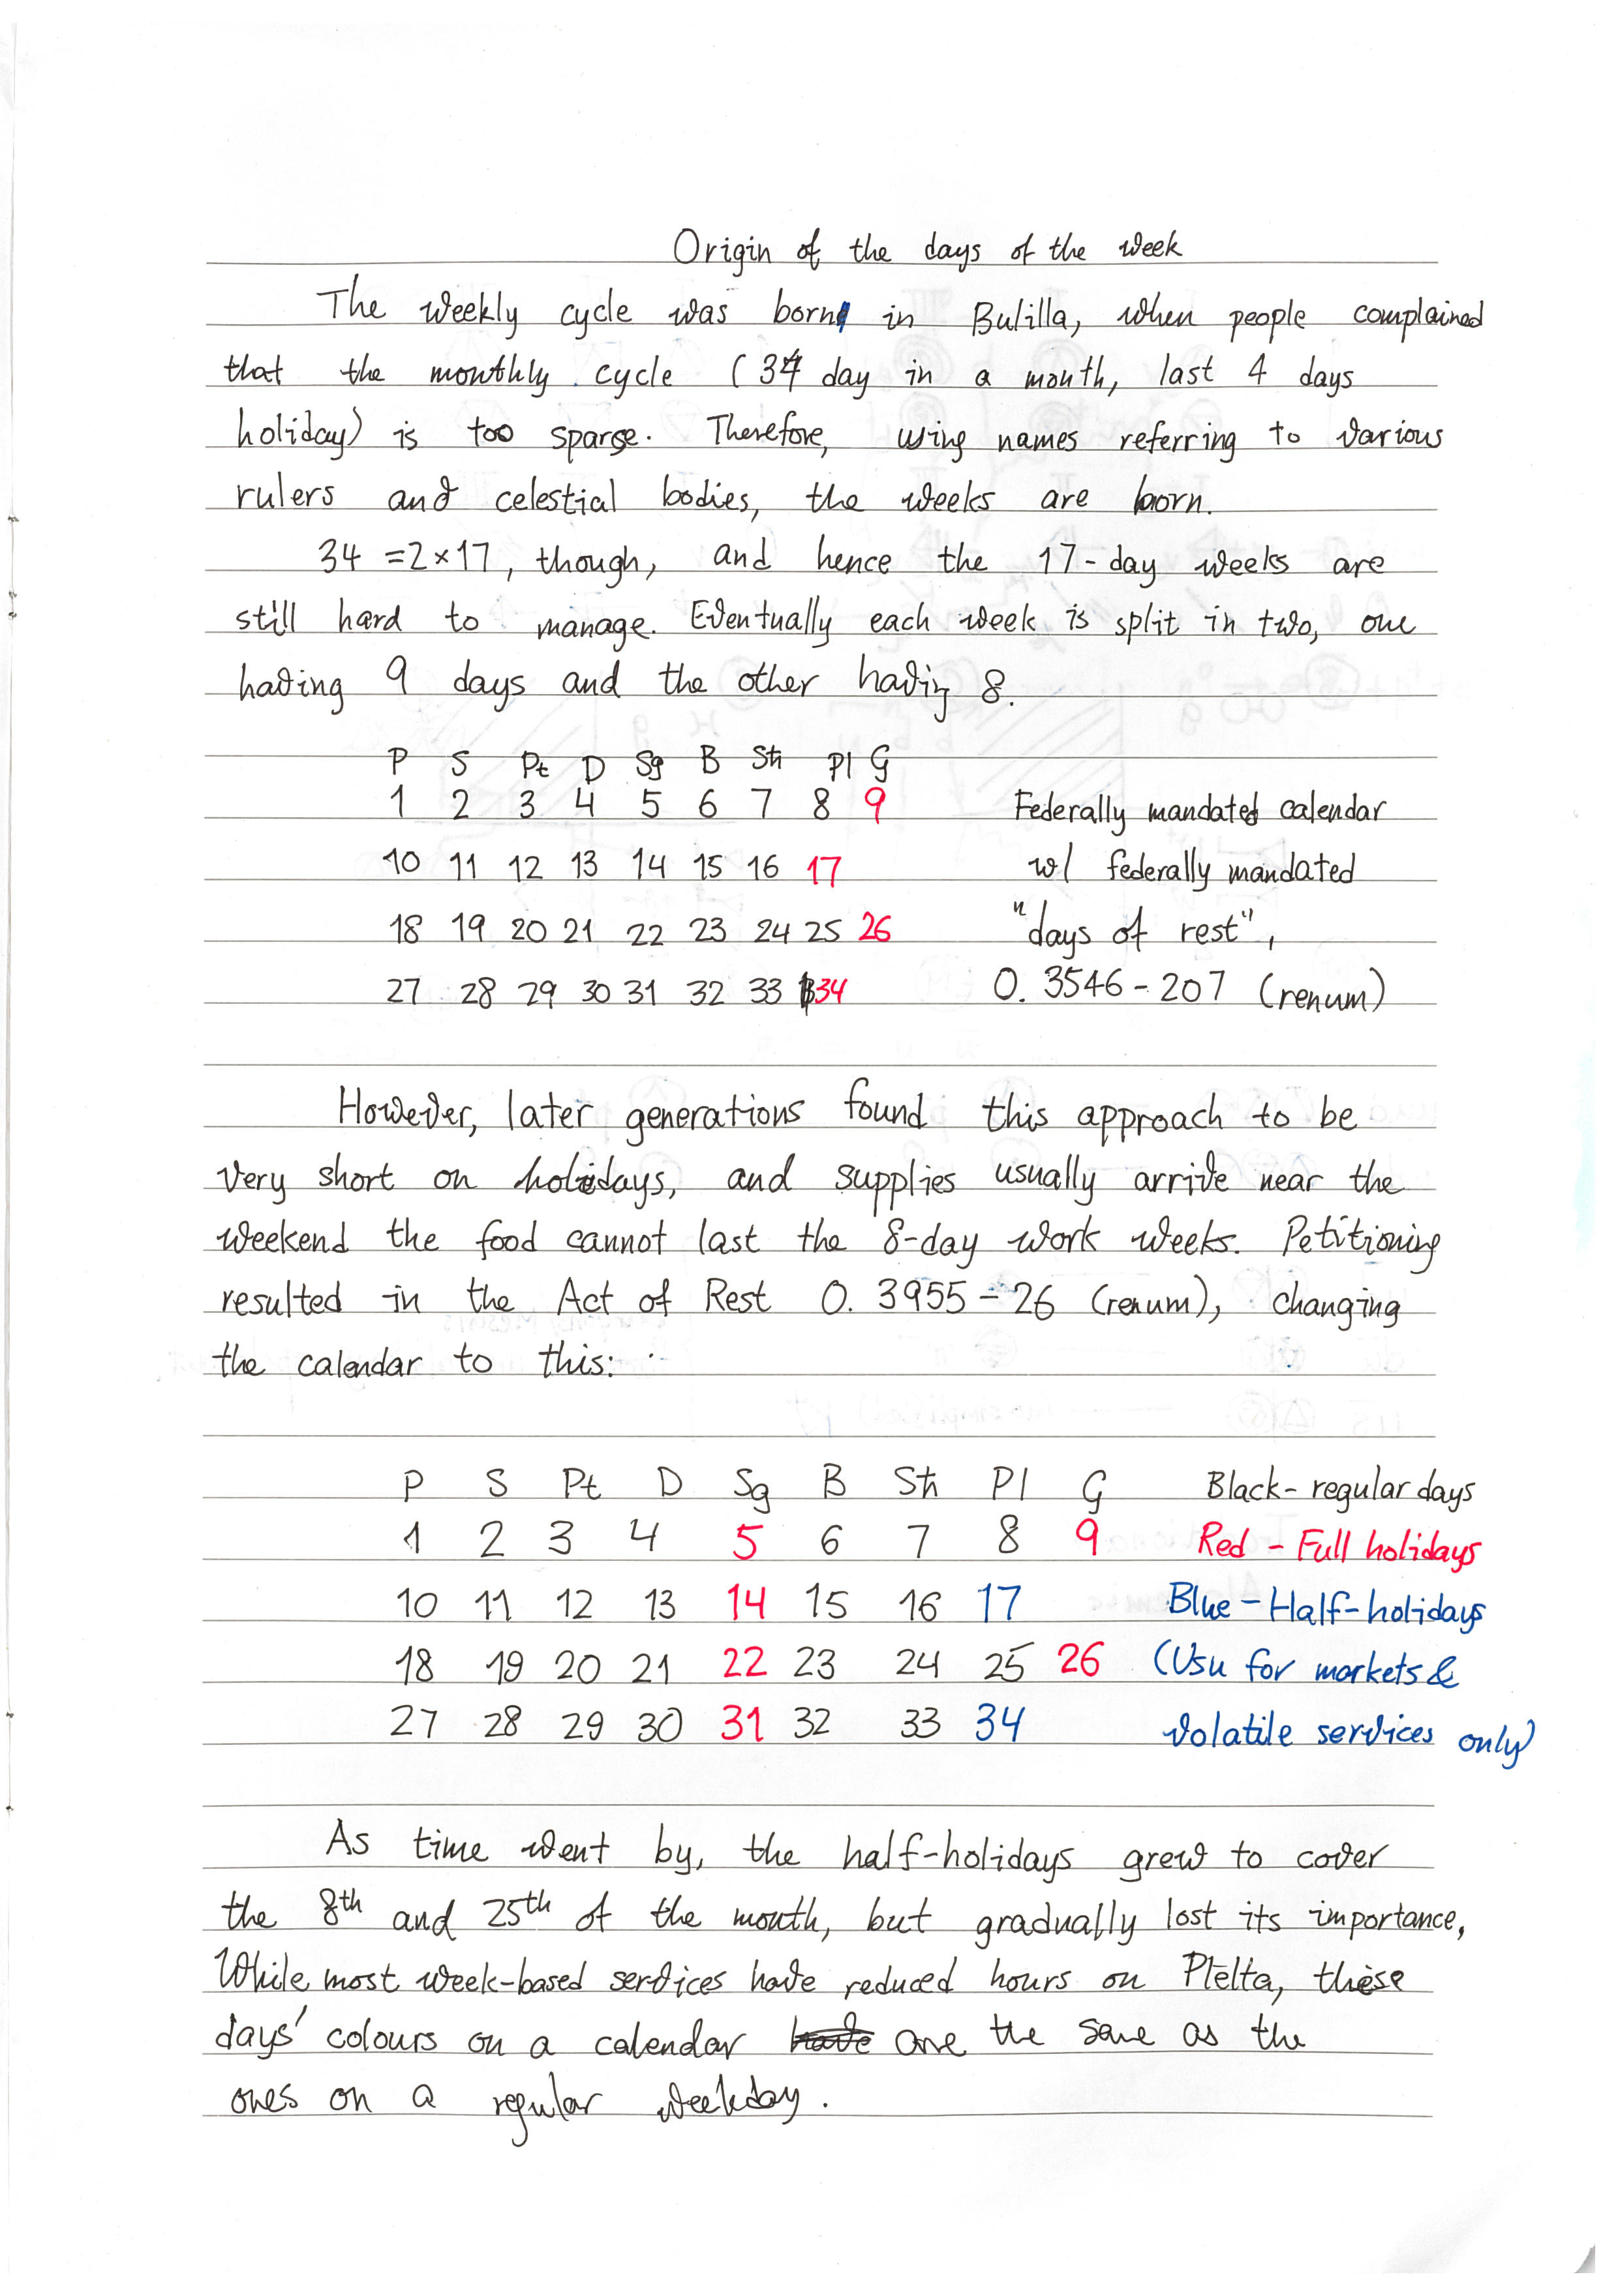 Origin of the days of the week
The weekly cycle was born in Bulilla, when people complained
that the monthly cycle (34 day in a month, last 4 days
holiday) is too sparse. Therefore, using names referring to various
rulers and celestial bodies, the weeks are born.
34 = 2×17, though, and hence the 17-day weeks are
still hard to manage. Eventually each week is split in two, one
having 9 days and the other having 8.
P S Pt D Sg B Sh Pl G
1 2 3 4 5 6 7 8 9 Federally mandated calendar
10 11 12 13 14 15 16 17 w/ federally mandated
18 19 20 21 22 23 24 25 26 "days of rest",
27 28 29 30 31 32 33 34 0. 3546-207 (renum)
However, later generations found this approach to be
very short on holidays, and supplies usually arrive near the
weekend the food cannot last the 8-day work weeks. Petitioning
resulted in the Act of Rest 0. 3955-26 (renum), changing
the calendar to this:
P S Pt D Sg B Sh Pl G Black- regular days
1 2 3 4 5 6 7 8 9 Red - Full holidays
10 11 12 13 14 15 16 17 Blue - Half-holidays
18 19 20 21 22 23 24 25 26 (Usu for markets &
27 28 29 30 31 32 33 34 volatile services only)
As time went by, the half-holidays grew to cover
the 8th and 25th of the month, but gradually lost its importance,
While most week-based services have reduced hours on Plelta, these
days' colours on a calendar are the same as the
ones on a regular weekday.